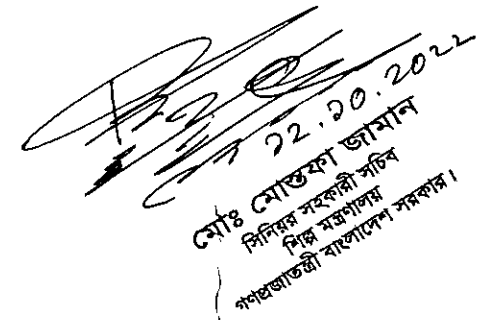 ১২.১০.২০২২
মোঃ মোস্তফা জামান
সিনিয়র সহকারী সচিব
শিল্প মন্ত্রণালয়
গণপ্রজাতন্ত্রী বাংলাদেশ সরকার।